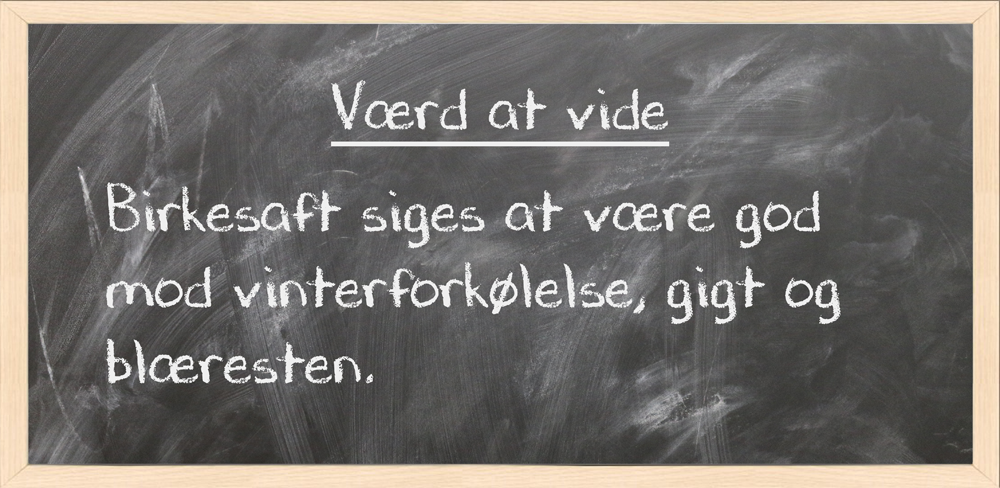 Værd at vide
Birkesaft siges at være god
mod vinterforkølelse, gigt og
blæresten.